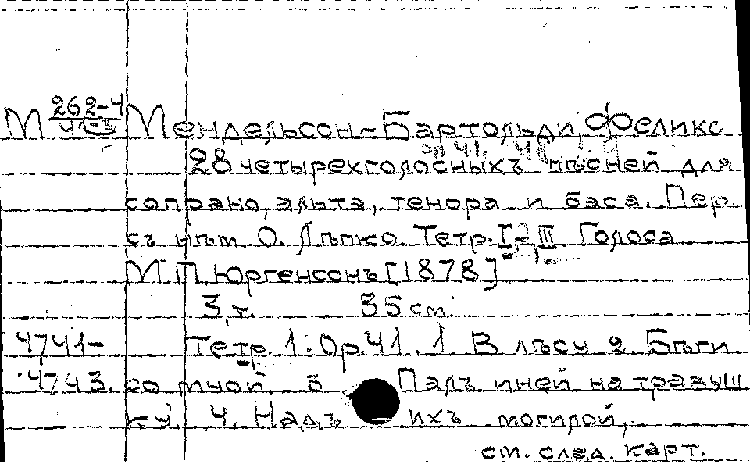 М 262-4 Мендельсон-Бартольди, Феликс
28 четырехголосныхъ пѣсней для
сопрано, альта, тенора и баса. Пер.
съ нѣм О. Лѣпко. Тетр. I-III Голоса
М. П. Юргенсонъ [1878]
3 т. 35 см.
4741- Тетр. 1: Op. 41. 1. В лѣсу 2 Бѣги
4743. со мной. 3 Палъ иней на травуш
ку 4. Надъ ихъ могилой,
см. след. карт.